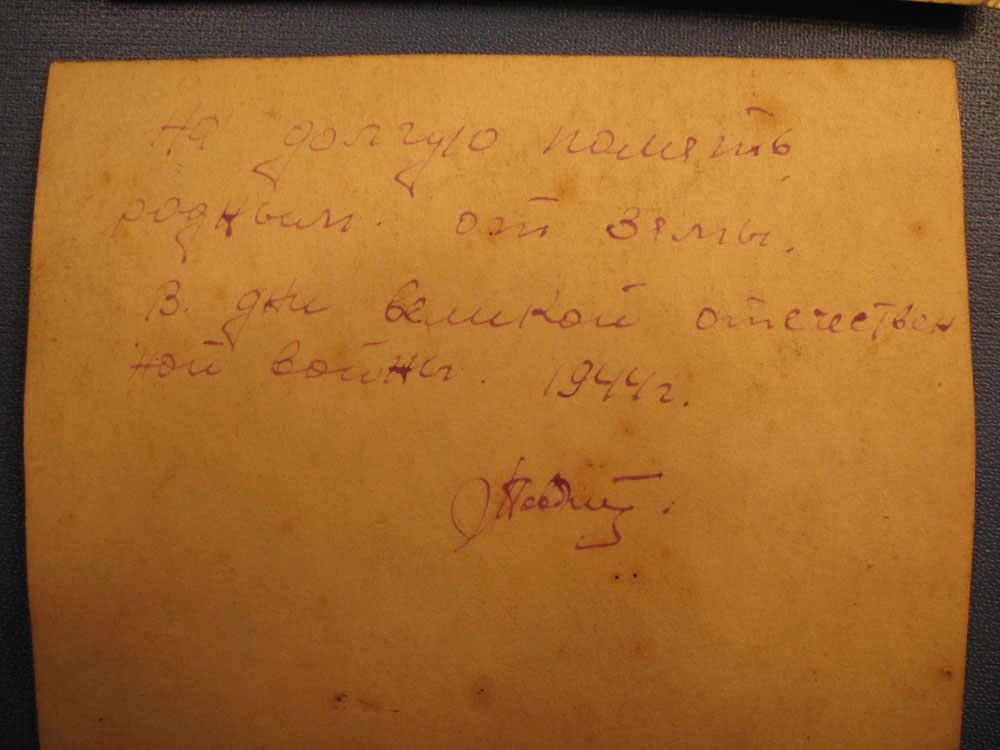 На долгую память
родным. от Зямы.
В. дни великой отечествен
ной войны. 1944г.